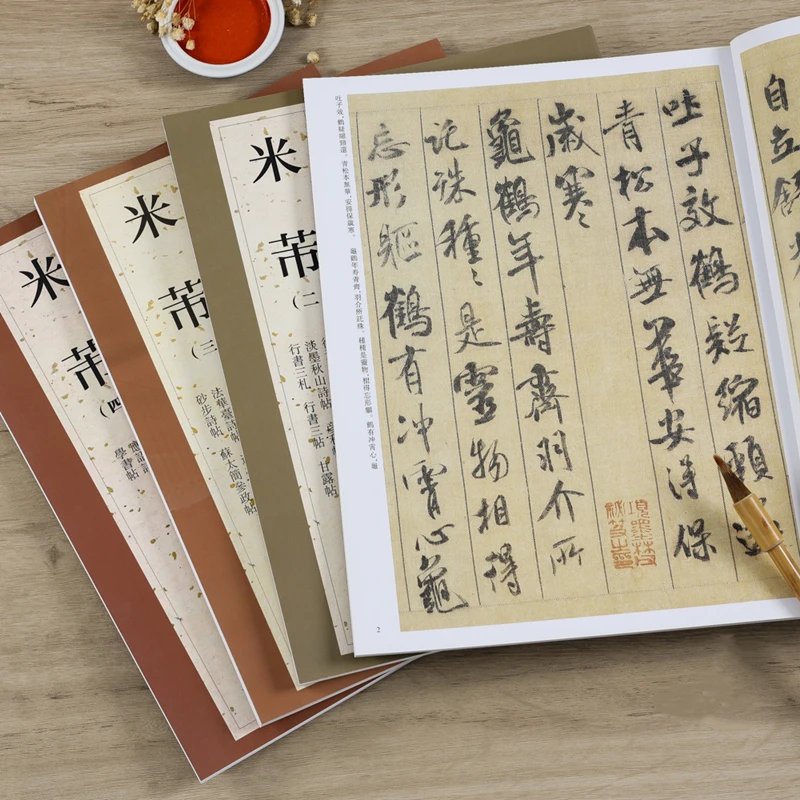 自立
吐子效鶴疑縮頸
青松本無華安得保
歲寒〻
龜鶴年壽齊羽介所
託殊種〻是靈物相得
忘形軀鶴有冲霄心龜
項墨林父
秘笈之印
吐子效,鶴疑縮頸還。青松本無華,安得保歲寒。 龜鶴年壽齊,羽介所託殊。種種是靈物,相得忘形軀。鶴有冲霄心,龜
2
米芾
(二
淡墨秋山詩帖
行書三札 行書三帖 甘露帖
米芾
(三
法華臺詩帖
砂步詩帖 蘇太簡參政帖
米芾
(四
學書帖